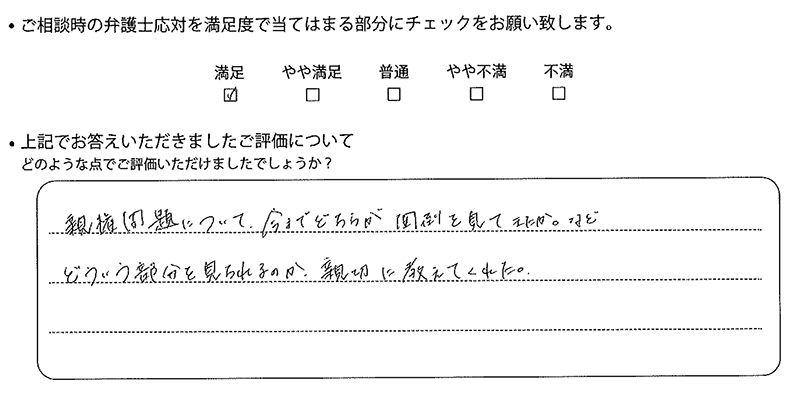 ・ご相談時の弁護士応対を満足度で当てはまる部分にチェックをお願い致します。
満足 やや満足 普通 やや不満 不満
☑ □ □ □ □
・上記でお答えいただきましたご評価について
どのような点でご評価いただけましたでしょうか？
親権問題について、今までどちらが面倒を見てきたか。など
どういう部分を見られるのか、親切に教えてくれた。